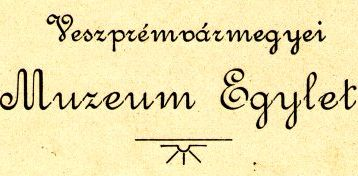 Veszprémvármegyei
Muzeum Egylet